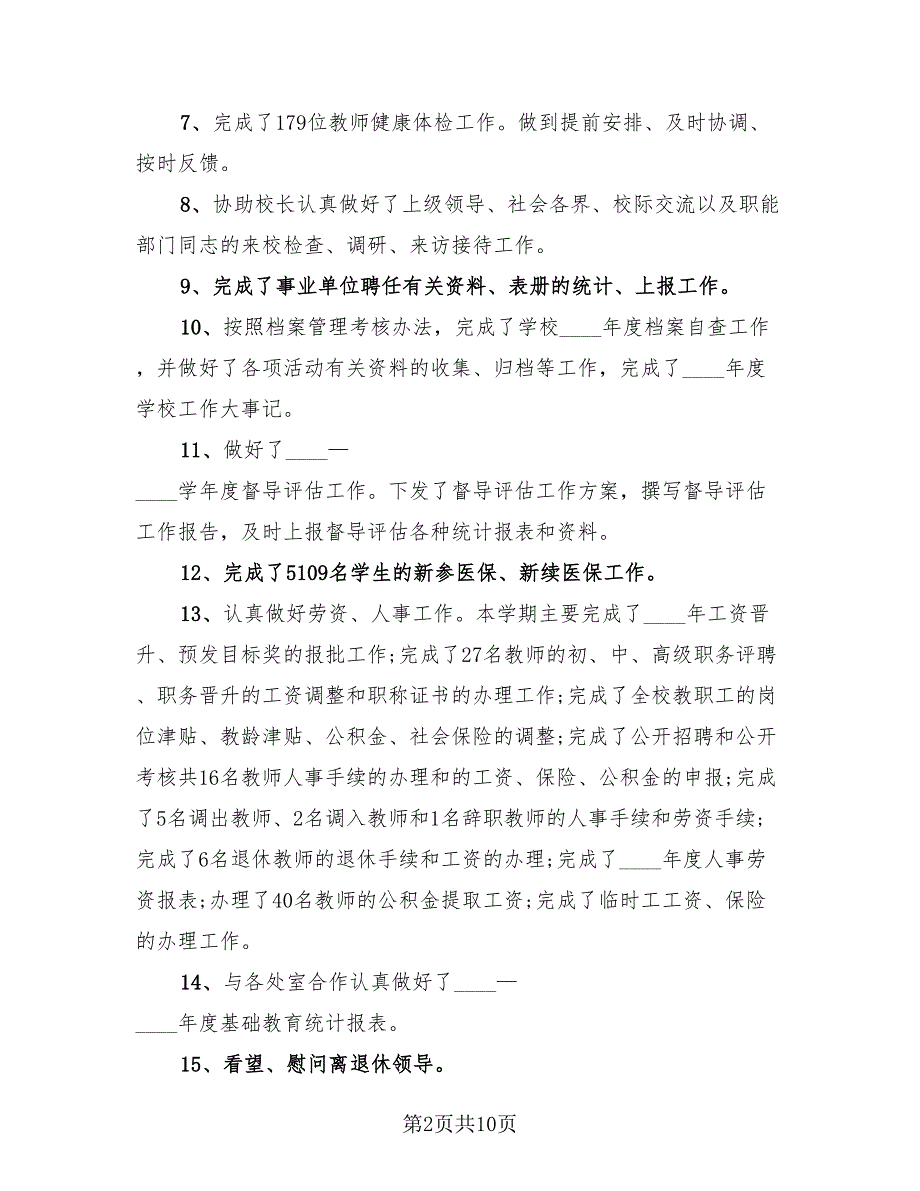 7、完成了179位教师健康体检工作。做到提前安排、及时协调、
按时反馈。
8、协助校长认真做好了上级领导、社会各界、校际交流以及职能
部门同志的来校检查、调研、来访接待工作。
9、完成了事业单位聘任有关资料、表册的统计、上报工作。
10、按照档案管理考核办法，完成了学校____年度档案自查工作
，并做好了各项活动有关资料的收集、归档等工作，完成了____年度
学校工作大事记。
11、做好了____—
____学年度督导评估工作。下发了督导评估工作方案，撰写督导评估
工作报告，及时上报督导评估各种统计报表和资料。
12、完成了5109名学生的新参医保、新续医保工作。
13、认真做好劳资、人事工作。本学期主要完成了____年工资晋
升、预发目标奖的报批工作;完成了27名教师的初、中、高级职务评聘
、职务晋升的工资调整和职称证书的办理工作;完成了全校教职工的岗
位津贴、教龄津贴、公积金、社会保险的调整;完成了公开招聘和公开
考核共16名教师人事手续的办理和的工资、保险、公积金的申报;完成
了5名调出教师、2名调入教师和1名辞职教师的人事手续和劳资手续;
完成了6名退休教师的退休手续和工资的办理;完成了____年度人事劳
资报表;办理了40名教师的公积金提取工资;完成了临时工工资、保险
的办理工作。
14、与各处室合作认真做好了____—
____年度基础教育统计报表。
15、看望、慰问离退休领导。
第2页共10页